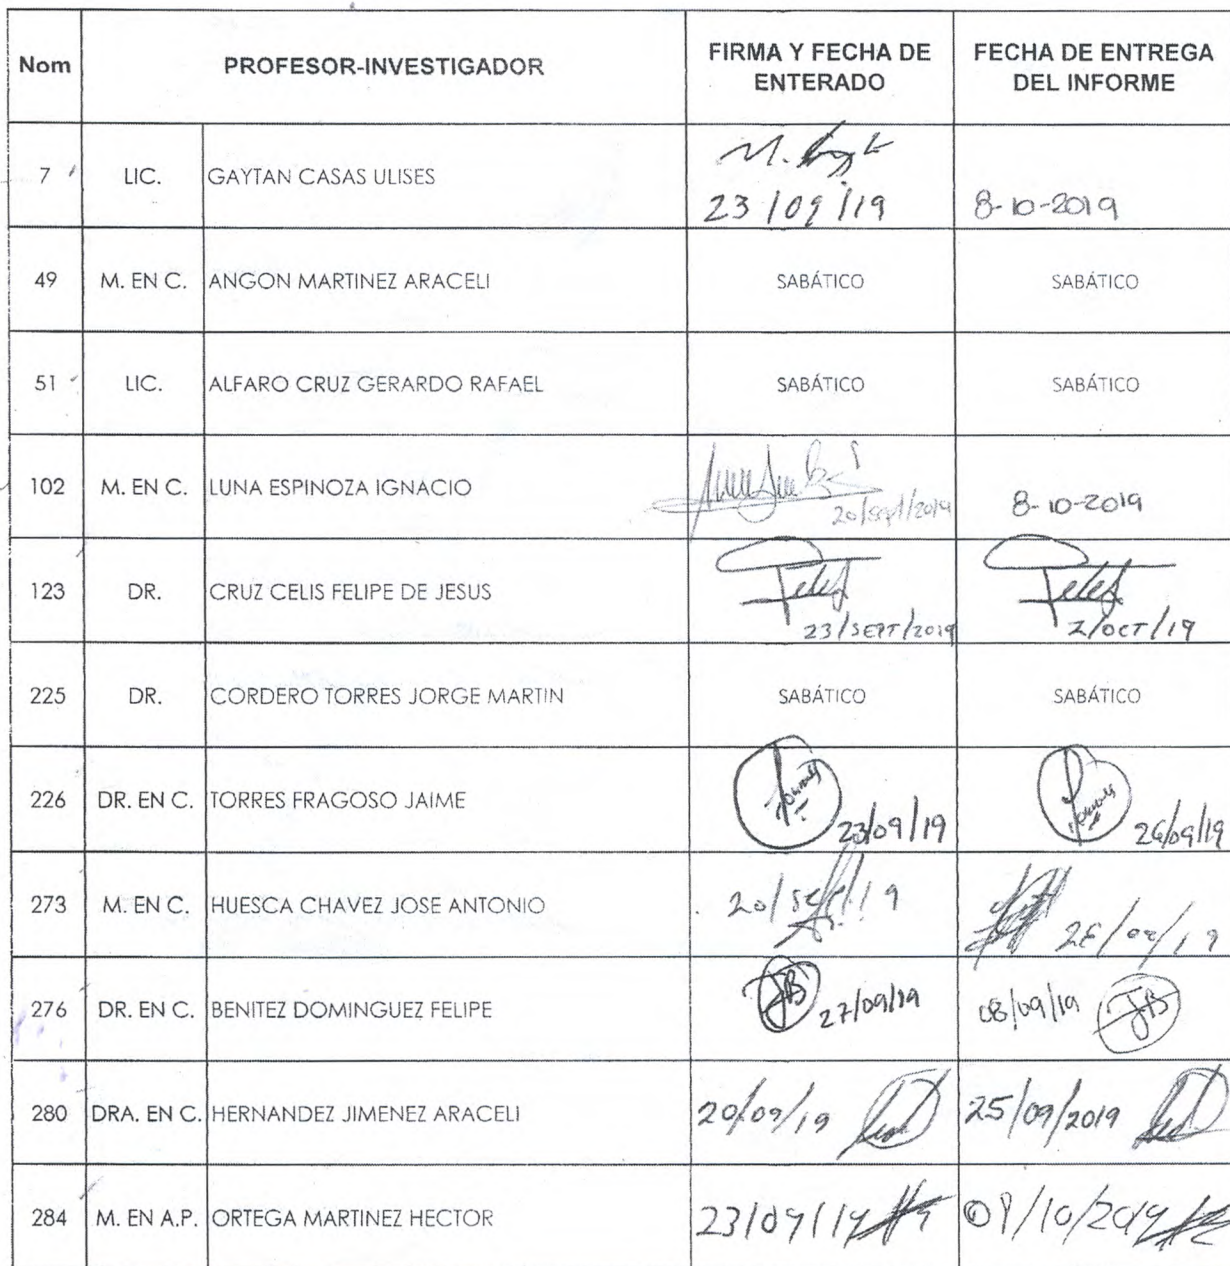 Nom PROFESOR-INVESTIGADOR FIRMA Y FECHA DE ENTERADO FECHA DE ENTREGA DEL INFORME
7 LIC. GAYTAN CASAS ULISES 23/09/19 8-10-2019
49 M. EN C. ANGON MARTINEZ ARACELI SABÁTICO SABÁTICO
51 LIC. ALFARO CRUZ GERARDO RAFAEL SABÁTICO SABÁTICO
102 M. EN C. LUNA ESPINOZA IGNACIO 20/sept/2019 8-10-2019
123 DR. CRUZ CELIS FELIPE DE JESUS 23/SEPT/2019 2/OCT/19
225 DR. CORDERO TORRES JORGE MARTIN SABÁTICO SABÁTICO
226 DR. EN C. TORRES FRAGOSO JAIME 23/09/19 26/09/19
273 M. EN C. HUESCA CHAVEZ JOSE ANTONIO
276 DR. EN C. BENITEZ DOMINGUEZ FELIPE JB 27/09/19 08/09/19 JB
280 DRA. EN C. HERNANDEZ JIMENEZ ARACELI 20/09/19 25/09/2019
284 M. EN A.P. ORTEGA MARTINEZ HECTOR 23/09/19